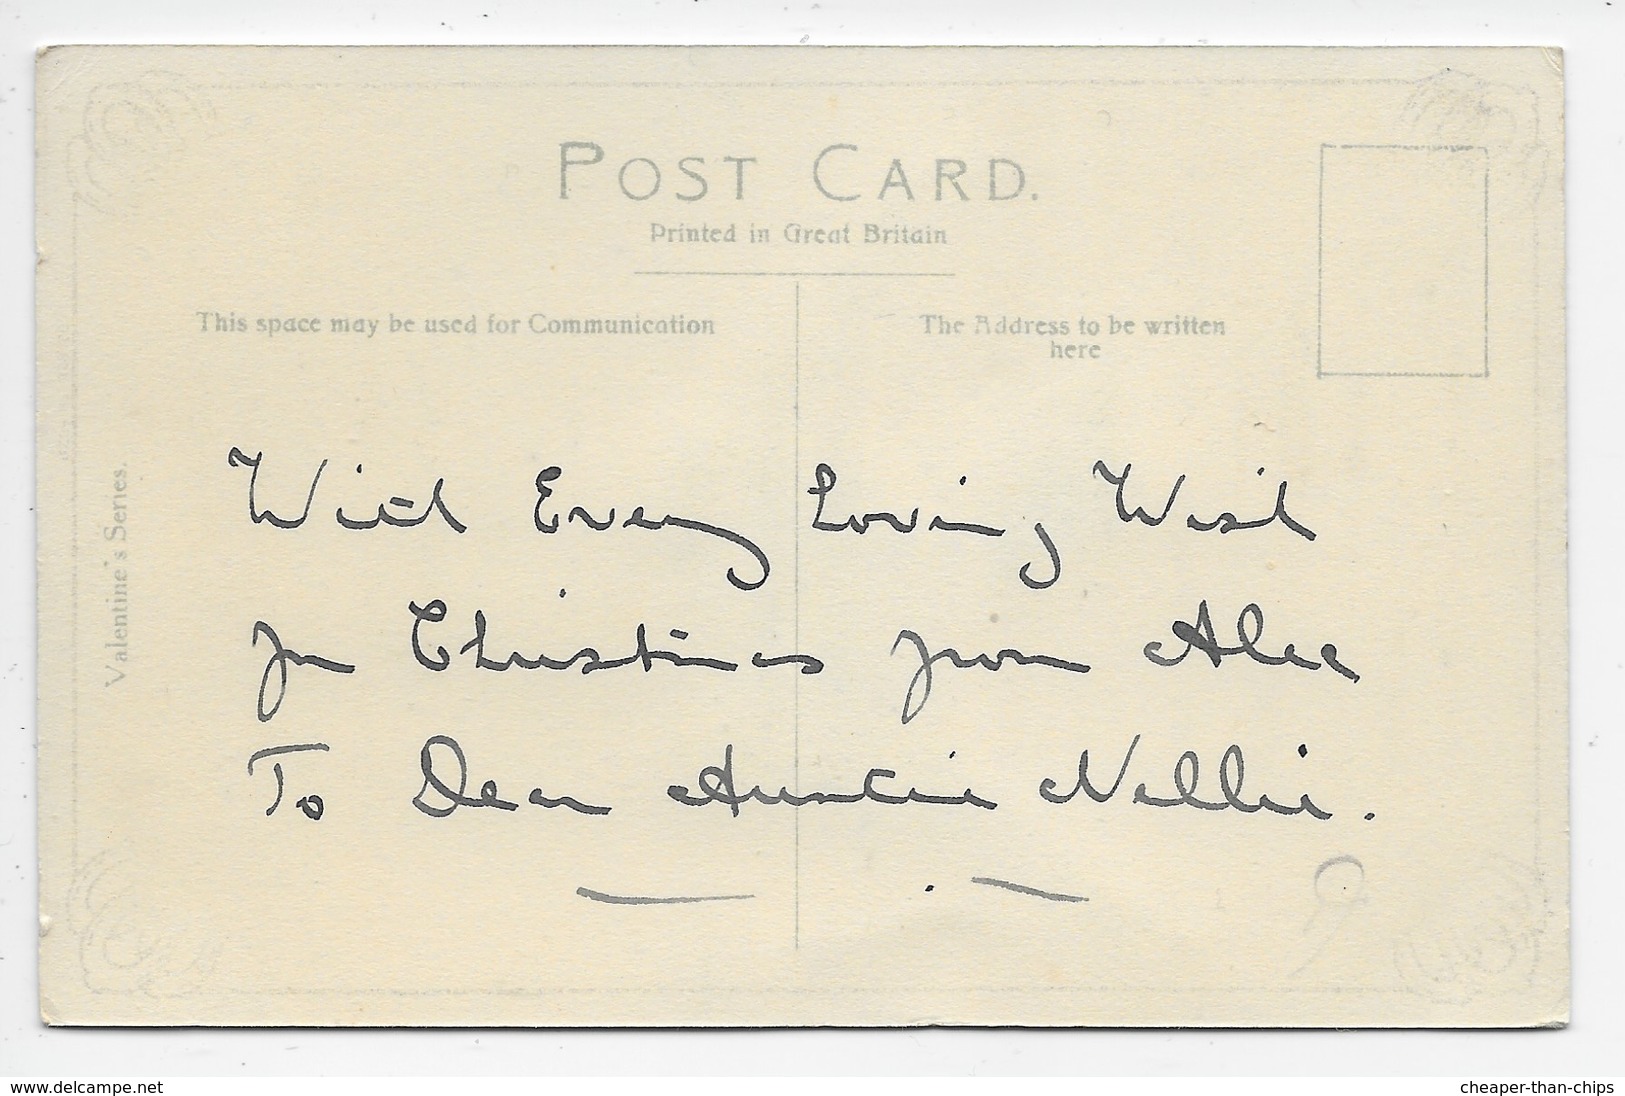 POST CARD.
Printed in Great Britain
This space may be used for Communication
The Address to be written
here
Valentine's Series.
With Every Loving Wish
for Christmas from Alec
To Dear Auntie Nellie.
www.delcampe.net
cheaper-than-chips